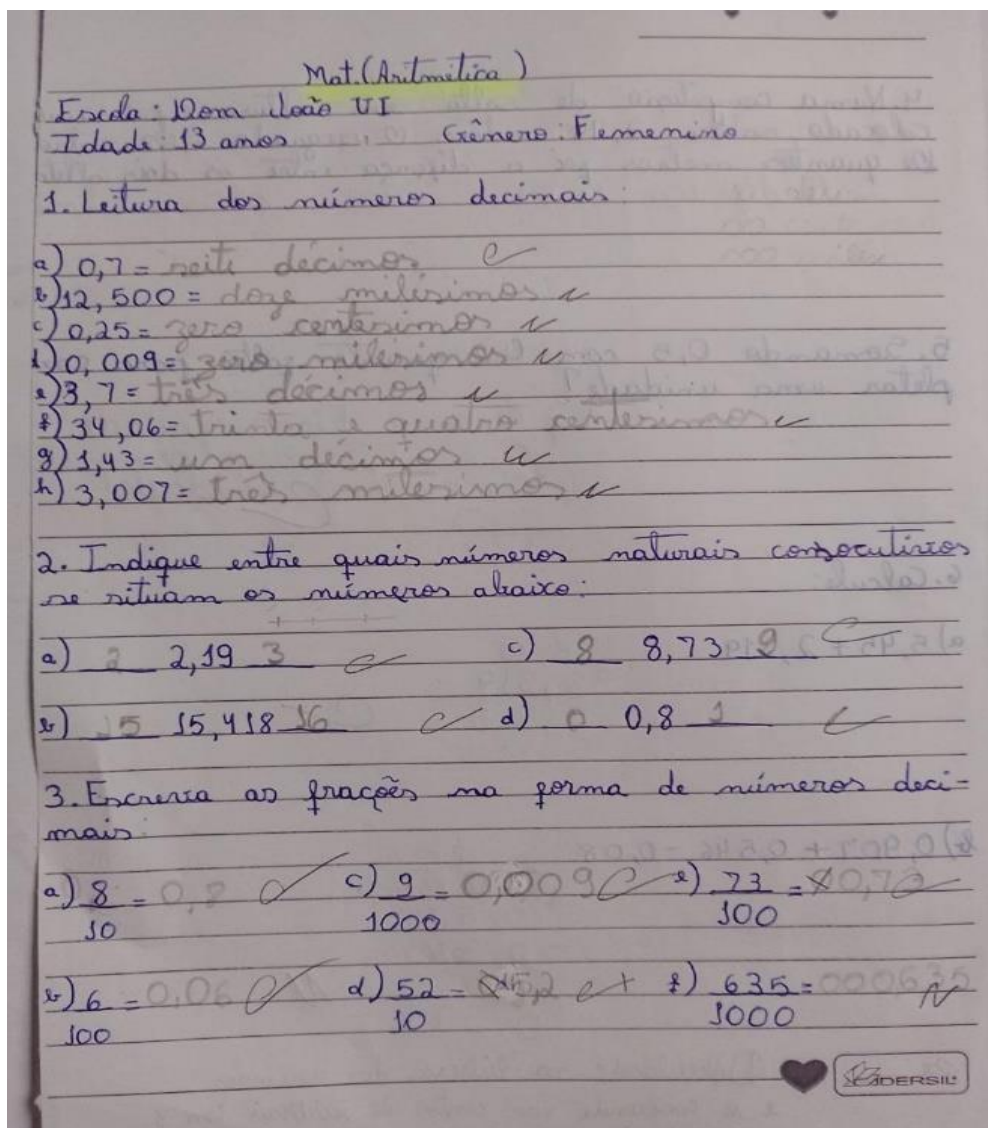 Mat. (Aritmética)
Escola: Dom João VI
Idade: 13 anos Gênero: Femenino
1. Leitura dos números decimais:
a) 0,7 = seite décimos
b) 12,500 = doze milésimos
c) 0,25 = zero centesimos
d) 0,009 = zero milesimos
e) 3,7 = três décimos
f) 34,06 = Trinta e quatro centesimos
g) 1,43 = um décimos
h) 3,007 = três milesimos
2. Indique entre quais números naturais consecutivos
se situam os números abaixo:
a) 2 2,19 3 c) 8 8,73 9
b) 15 15,418 16 d) 0 0,8 1
3. Escreva as frações na forma de números deci-
mais:
a) 8/10 = 0,8 c) 9/1000 = 0,009 e) 73/100 = 0,73
b) 6/100 = 0,06 d) 52/10 = 5,2 f) 635/1000 = 000635